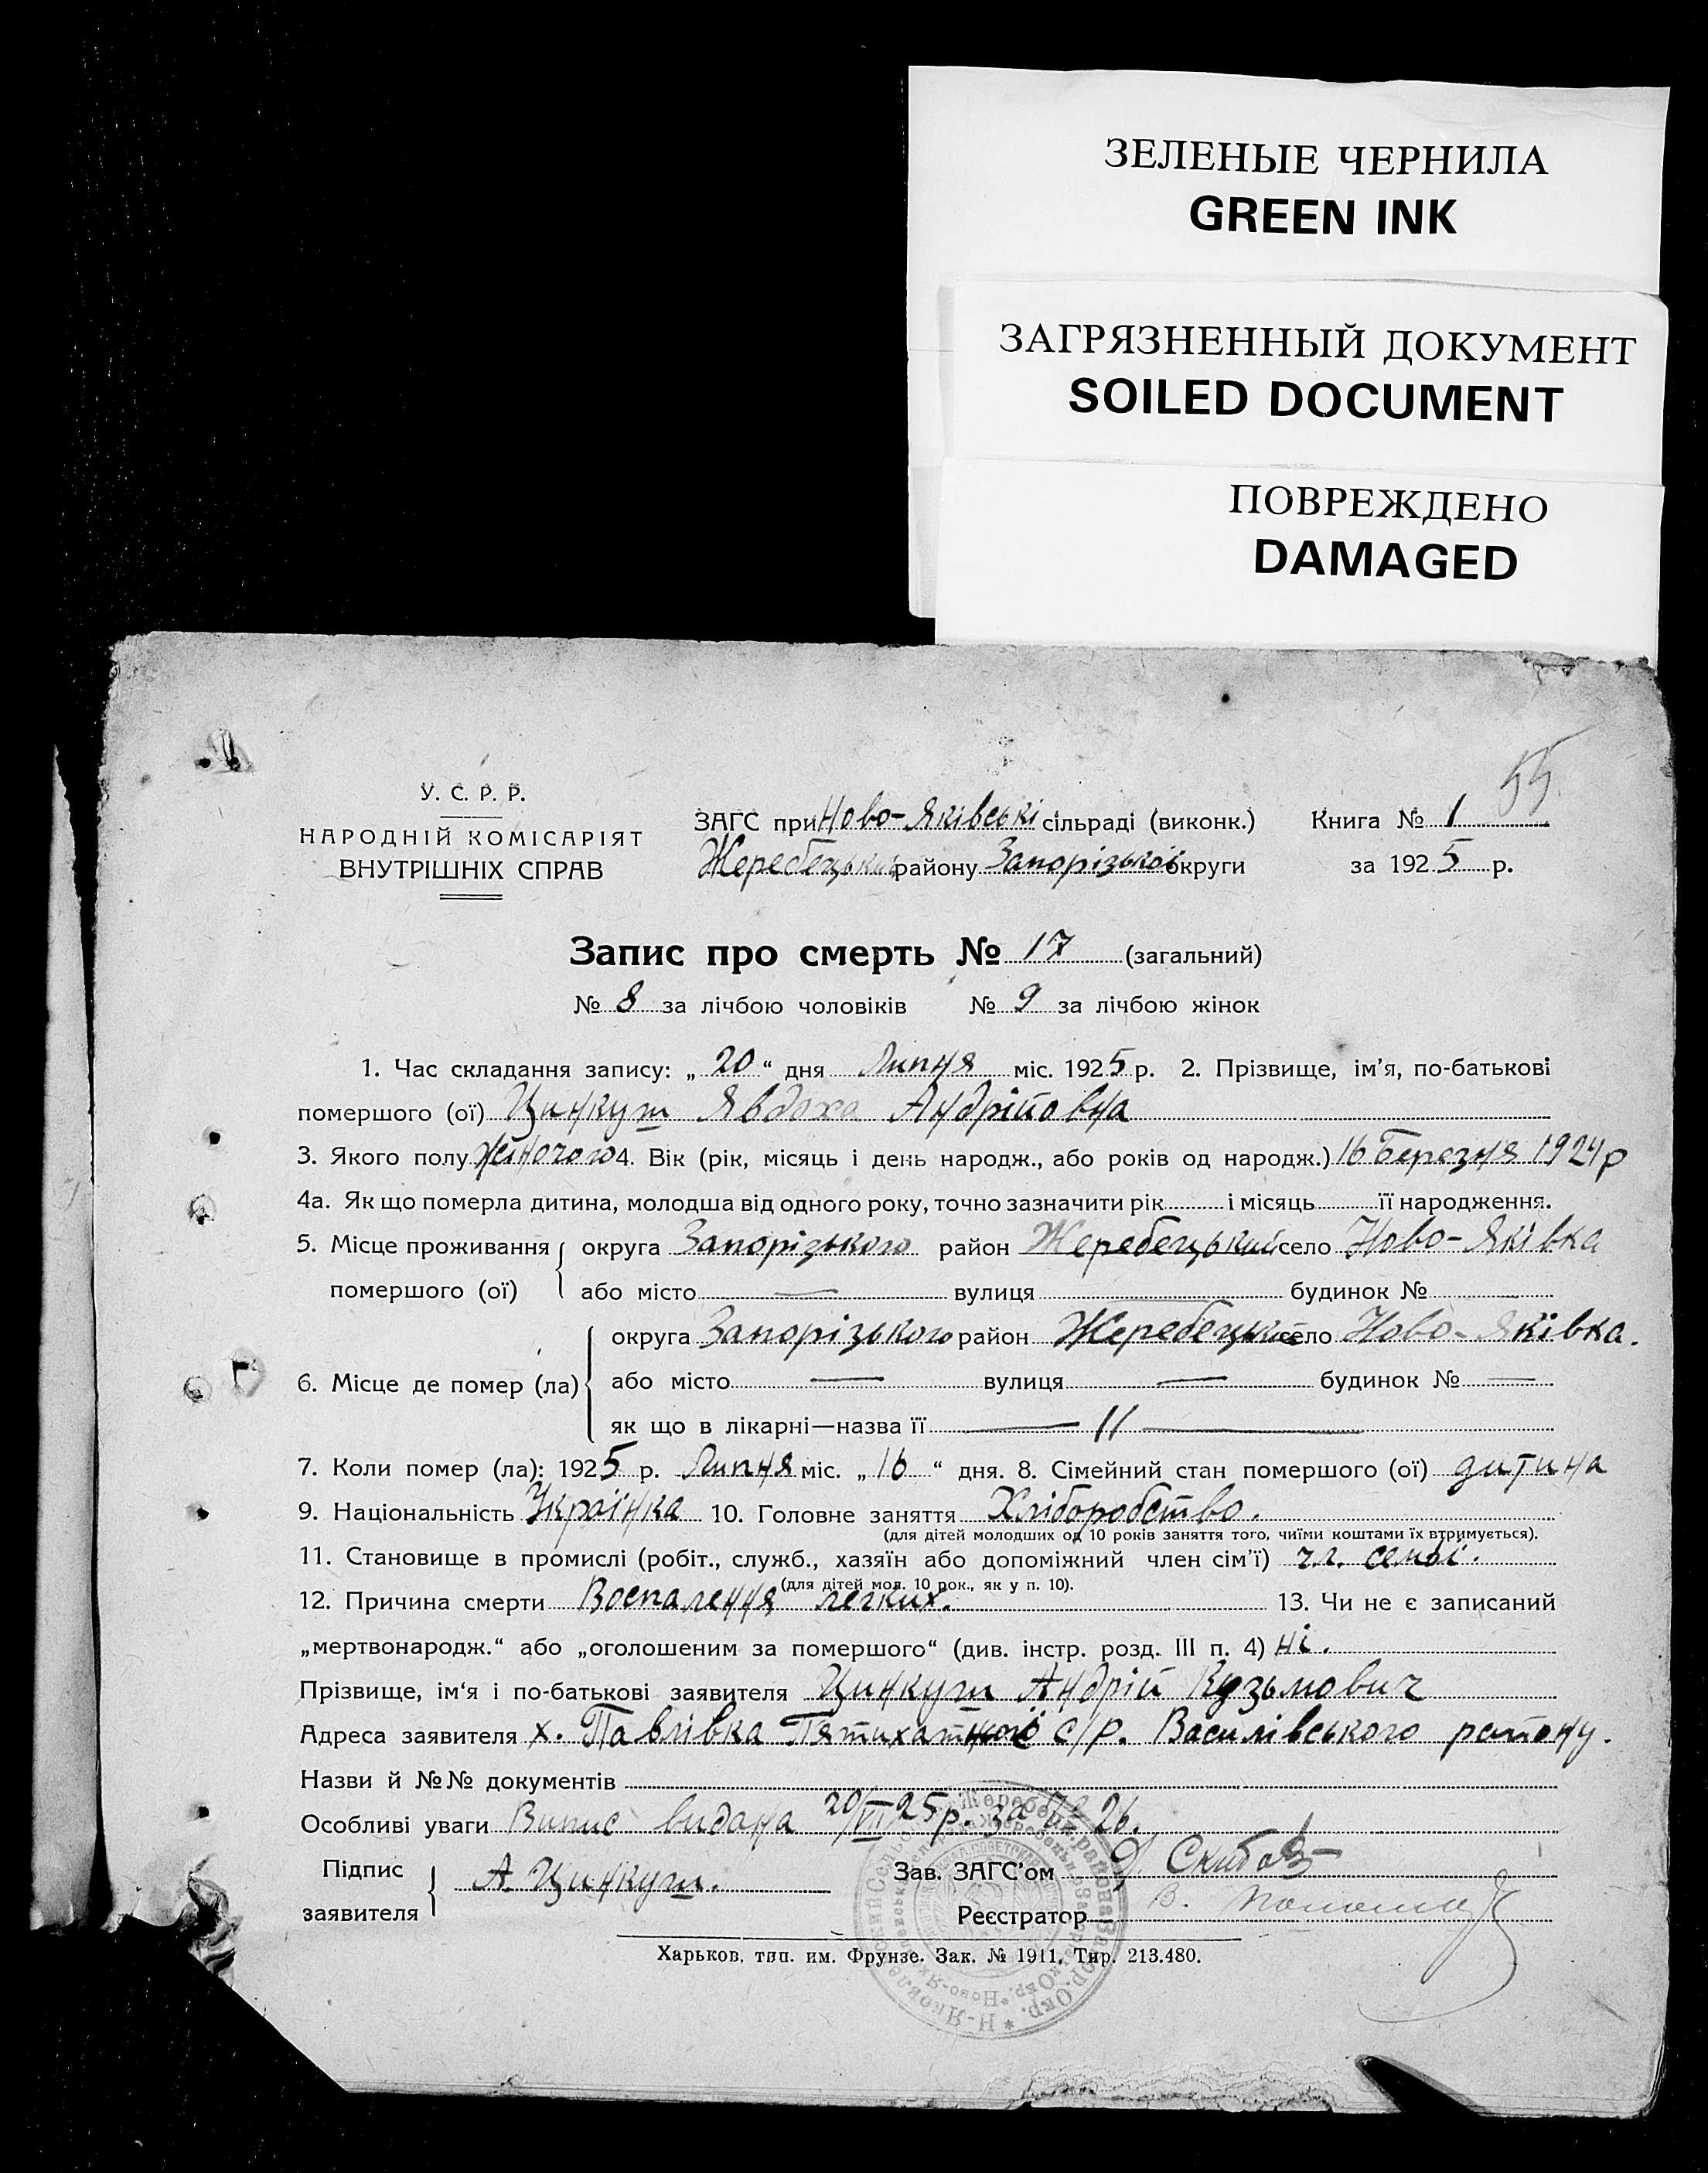 ЗЕЛЕНЫЕ ЧЕРНИЛА
GREEN INK
ЗАГРЯЗНЕННЫЙ ДОКУМЕНТ
SOILED DOCUMENT
ПОВРЕЖДЕНО
DAMAGED
55
У. С. Р. Р.
НАРОДНІЙ КОМІСАРІЯТ
ВНУТРІШНІХ СПРАВ
ЗАГС при Ново-Яківські сільраді (виконк.) Книга № 1
Жеребецький району Запорізькоі округи за 1925 р.
Запис про смерть № 17 (загальний)
№ 8 за лічбою чоловіків № 9 за лічбою жінок
1. Час складання запису: „ 20 “ дня Липня міс. 1925 р. 2. Прізвище, ім'я, по-батькові
помершого (ої) Цинкуш Явдоха Андрійовна
3. Якого полу жіночого 4. Вік (рік, місяць і день народж., або років од народж.) 16 Березня 1924 р
4а. Як що померла дитина, молодша від одного року, точно зазначити рік і місяць її народження.
5. Місце проживання округа Запорізького район Жеребецький село Ново-Яківка
помершого (ої) або місто — вулиця будинок №
округа Запорізького район Жеребецький село Ново-Яківка.
6. Місце де помер (ла) або місто — вулиця — будинок № —
як що в лікарні—назва її — 11 —
7. Коли помер (ла): 1925 р. Липня міс. „ 16 “ дня. 8. Сімейний стан помершого (ої) дитина
9. Національність Українка 10. Головне заняття Хліборобство.
(для дітей молодших од 10 років заняття того, чиїми коштами їх втримується).
11. Становище в промислі (робіт., служб., хазяїн або допоміжний член сім'ї) чл. семьї.
(для дітей мол. 10 рок., як у п. 10).
12. Причина смерти Воспалення легких. 13. Чи не є записаний
„мертвонародж.“ або „оголошеним за помершого“ (див. інстр. розд. III п. 4) ні.
Прізвище, ім'я і по-батькові заявителя Цинкуш Андрій Кузьмович
Адреса заявителя х. Павлівка Пятихатної с/р. Василівського району.
Назви й №№ документів
Особливі уваги Випис видана 20/VII 25 р. за № 26.
Підпис А. Цинкуш. Зав. ЗАГС'ом Скибов
заявителя Реєстратор В.
Харьков, тип. им. Фрунзе. Зак. № 1911. Тир. 213.480.